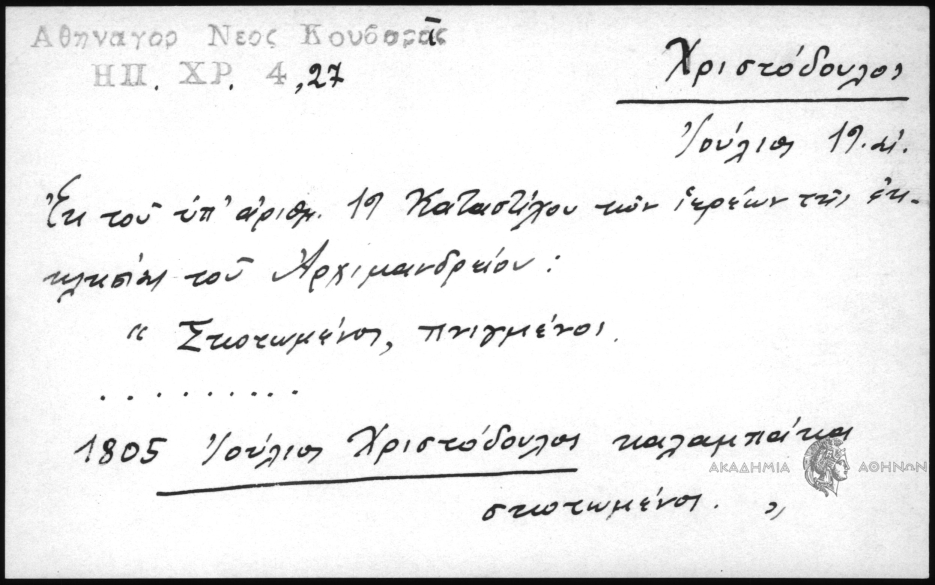 Αθηναγορ Νεος Κουβαρᾶς
ΗΠ. ΧΡ. 4, 27
Χριστόδουλος
Ἰούλιος 19. αἰ.
Ἐκ τοῦ ὑπ' ἀριθμ. 19 Καταστίχου τῶν ἱερέων τῆς ἐκ-
κλησίας τοῦ Ἀρχιμανδρείου:
“ Σκοτωμένοι, πνιγμένοι.
.........
1805 Ἰούλιος Χριστόδουλος καλαμπαίκα
ΑΚΑΔΗΜΙΑ ΑΘΗΝΩΝ
σκοτωμένος. „